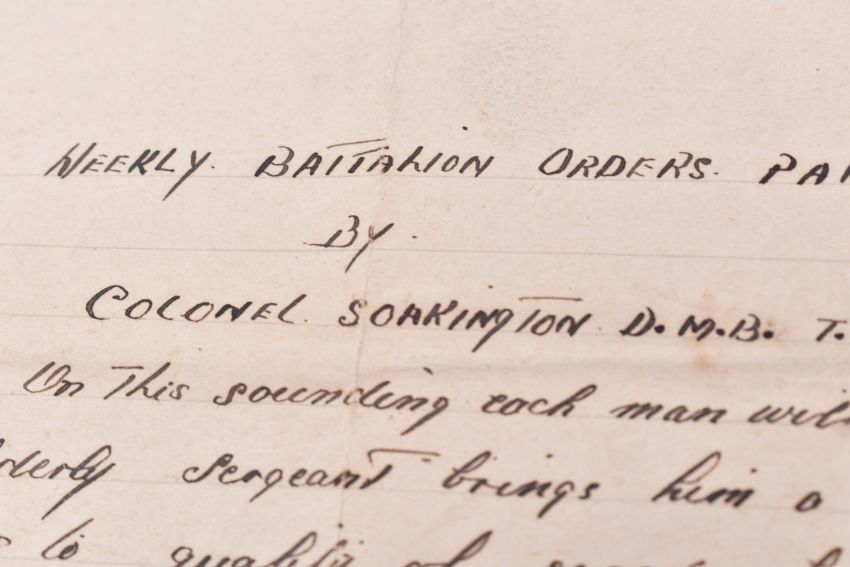 WEEKLY. BATTALION ORDERS. PA
BY.
COLONEL SOAKINGTON D.M.B. T.
On This sounding each man will
derly Sergeant brings him a
to quality of